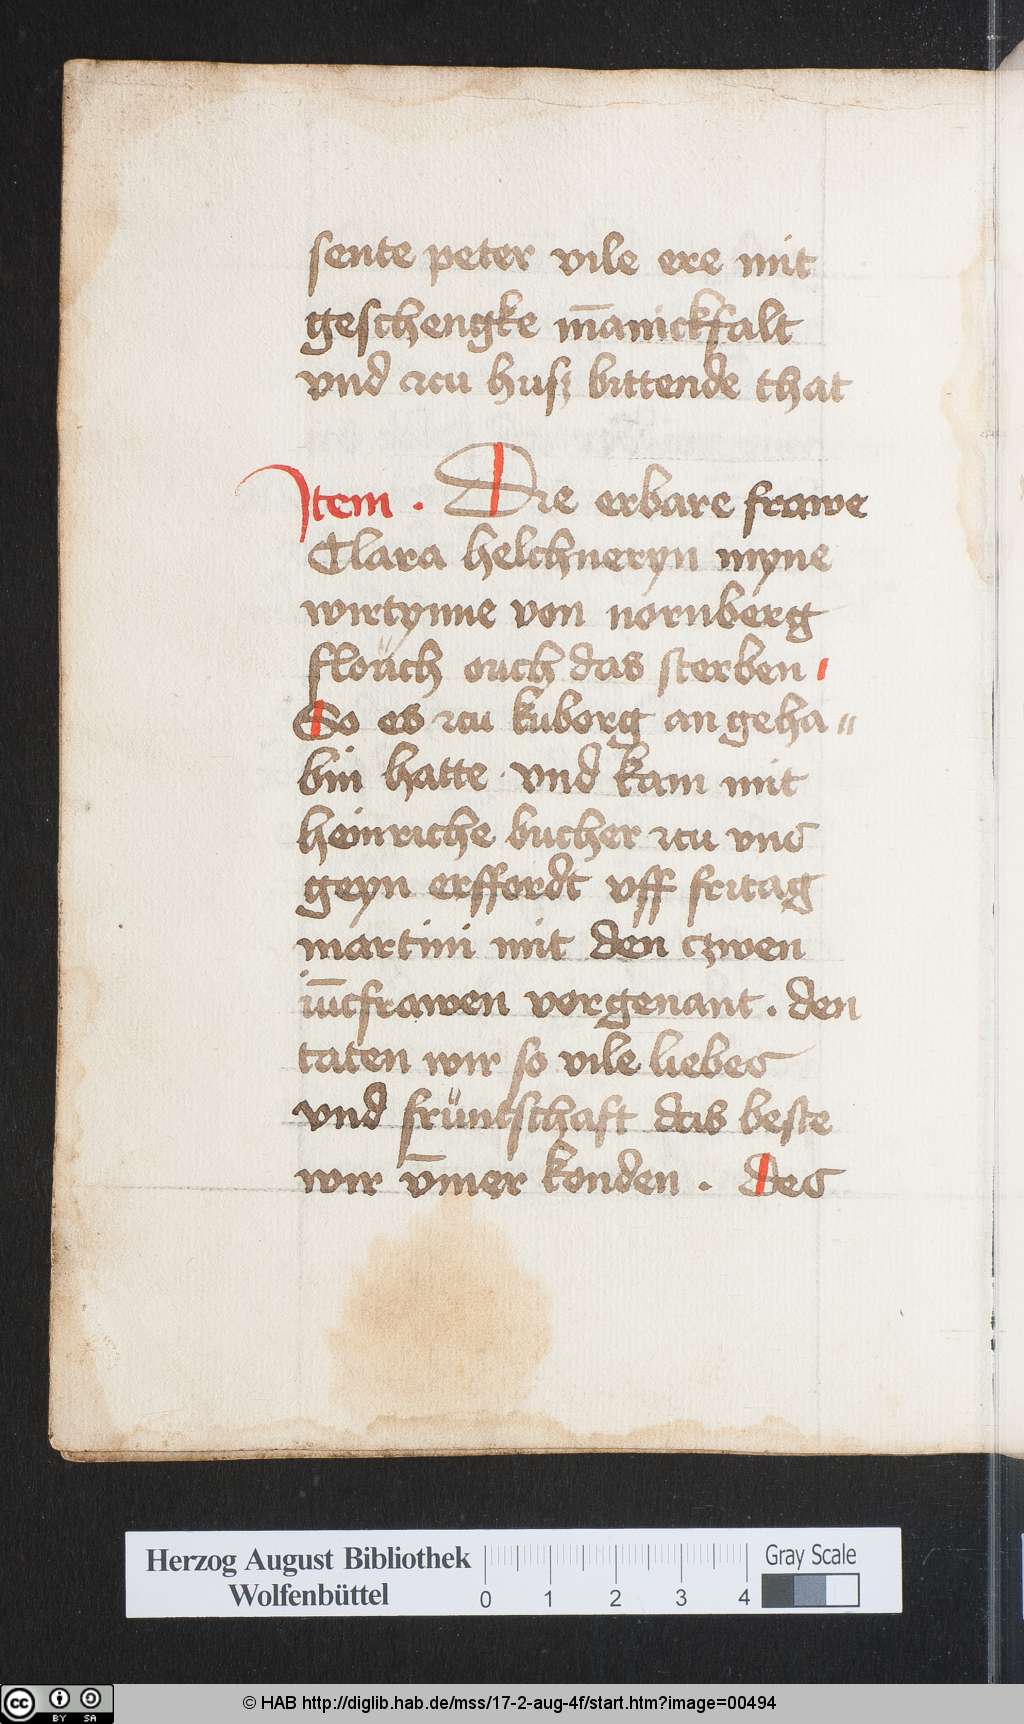 sente peter vile ere mit
geschengke m̄anickfalt
vnd zcu husz bittende that
Item . Die erbare frawe
Clara helchneryn myne
wirtynne von nornberg
flouch ouch das sterben
So es zcu kuborg an geha=
bin hatte . vnd kam mit
heinriche bucher zcu vns
geyn erffordt vff fritag
martini mit den czwen
iūcfrawen vorgenant . den
taten wir so vile liebes
vnd früntschaft das beste
wir v̄mer konden . des
Herzog August Bibliothek
Wolfenbüttel
0 1 2 3 4
Gray Scale
cc BY SA
© HAB http://diglib.hab.de/mss/17-2-aug-4f/start.htm?image=00494